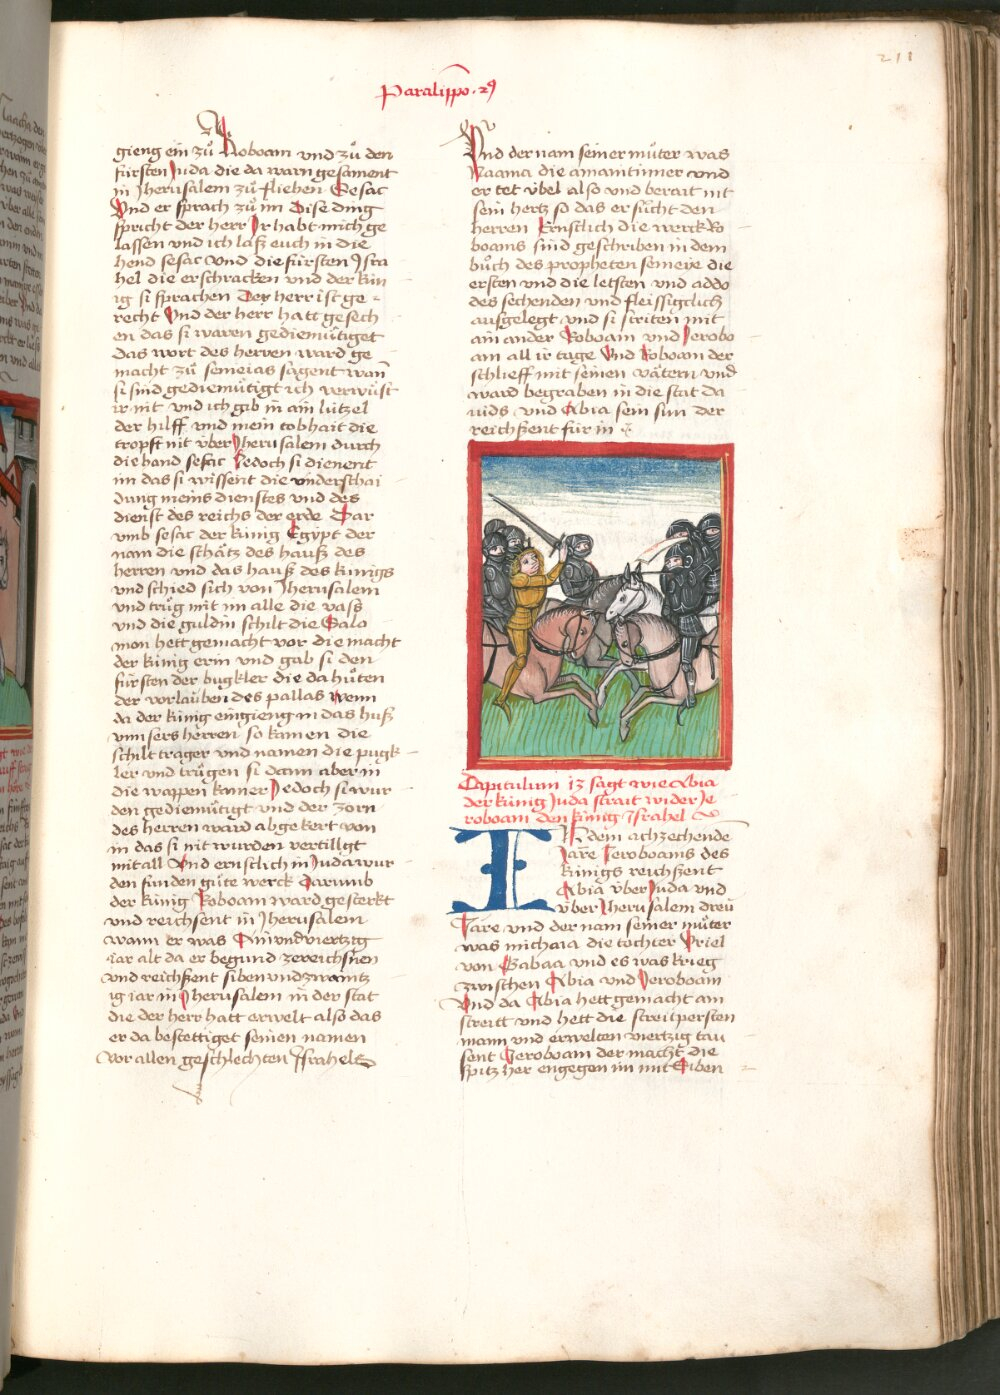 211
Paralippo. 29
gieng ein zů Roboam vnd zů den
fürsten Juda die da warn gesament
in Jherusalem zů fliehen Sesac
Vnd er sprach zů im Dise ding
spricht der herr Ir habt mich ge
lassen vnd ich laß euch in die
hend sesac vnd die fürsten Isra
hel die erschracken vnd der kün
ig si sprachen Der herr ist ge-
recht Vnd der herr hatt gesech
en das si waren gediemütiget
das wort des herren ward ge
macht zů semeias sagent wan
si sind gediemütigt ich verwüst
ir nit vnd ich gib in ain lützel
der hilff vnd mein tobhait die
tropft nit über Jherusalem durch
die hand sesac Jedoch si dienent
im das si wissent die vnderschai
dung meins dienstes vnd des
dienst des reichs der erde Dar
vmb sesac der künig Egypt der
nam die schätz des hauß des
herren vnd das hauß des künigs
vnd schied sich von Jherusalem
vnd trůg mit im alle die vass
vnd die guldin schilt die Salo
mon hett gemacht vor die macht
der künig erin vnd gab si den
fürsten der bugkler die da hůten
der vorlauben des pallas Wenn
da der künig eingieng in das huß
vnnsers herren so kamen die
schilt trager vnd namen die pugk
ler vnd trůgen si dann aber in
die wappen kamer Jedoch si wur
den gediemütigt vnd der zorn
des herren ward abgekert von
in das si nit wurden vertillgt
mitall Vnd ernstlich in Juda wur
den funden gůte werck Darumb
der künig Roboam ward gesterkt
vnd reichsent in Jherusalem
wann er was Ainvndviertzig
iar alt da er begund zereichsnen
vnd reichßent siben vndzwaintz
ig iar in Jherusalem in der stat
die der herr hatt erwelt also das
er da bestettiget seinen namen
vor allen geschlechten Jsrahels
Vnd der nam seiner můter was
Naama die amamtinner vnd
er tet übel also vnd berait nit
sein hertz so das er sůcht den
herren Ernstlich die werck Ro
boams sind geschriben in dem
bůch des propheten semeye die
ersten vnd die letsten vnd addo
des sechenden vnd fleissigclich
ausgelegt vnd si striten mit
am ander Roboam vnd Jerobo
am all ir tage Vnd Roboam der
schlieff mit seinen vätern vnd
ward begraben in die stat da
uids vnd Abia sein sun der
reichßent für in
Capitulum 13 sagt wie Abia
der künig Juda strait wider Je
roboam den künig Jsrahel
IN dem achzechende
Jare Jeroboams des
künigs reichßent
Abia über Juda vnd
über Jherusalem dreu
Jare vnd der nam seiner můter
was michaia die tochter Vriel
von Gabaa vnd es was krieg
zwischen Abia vnd Jeroboam
Vnd da Abia hett gemacht am
streitt vnd hett die streitpersten
mann vnd erwelten viertzig tau
sent Jeroboam der macht die
spitz her engegen im mit Siben